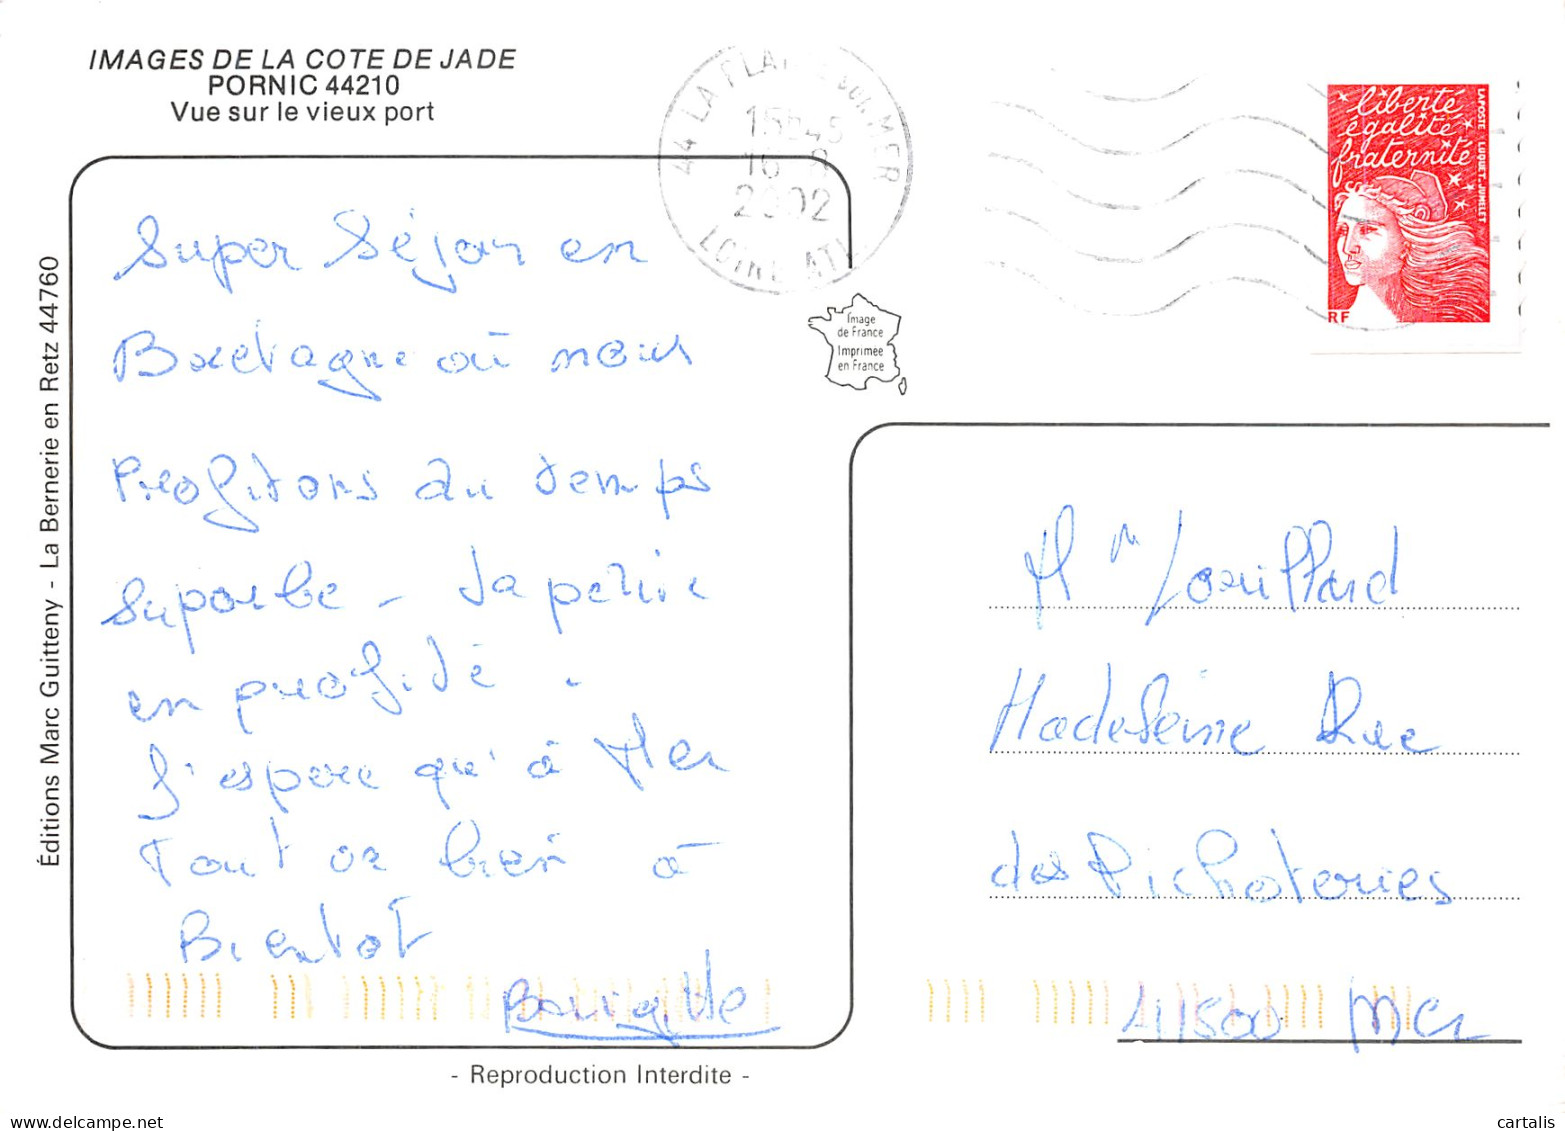 IMAGES DE LA COTE DE JADE
PORNIC 44210
Vue sur le vieux port
44 LA PLAINE SUR MER
15h45
16 -8
2002
LOIRE ATL
liberté
égalité
fraternité
LAPOSTE LUQUET_JUMELET
RF
Image
de France
Imprimee
en France
Éditions Marc Guitteny - La Bernerie en Retz 44760
Super Séjour en
Bretagne où nous
Profitons du temps
Superbe - La petite
en profité.
J'espere qu'à Mer
Tout va bien à
Bientot
Brigitte
Mm
Madeleine Rue
des Pichoteries
41500 Mer
- Reproduction Interdite -
delcampe.net
cartalis